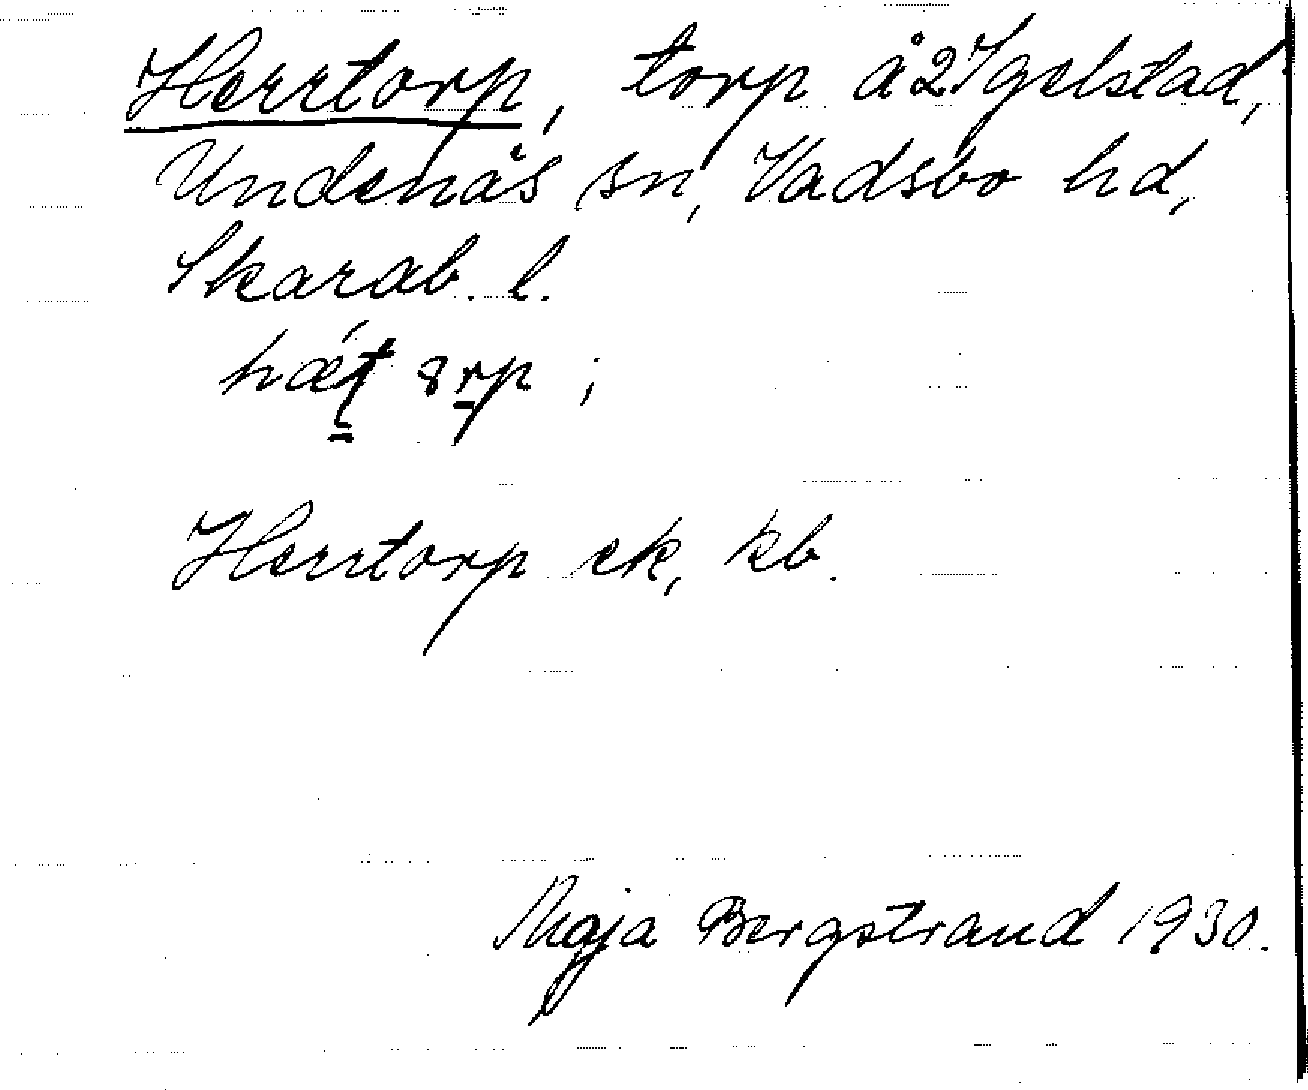 Herrtorp, torp å 2 Igelstad,
Undenäs sn, Vadsbo hd,
Skarab. l.
Herrtorp ek, kb.
Maja Bergstrand 1930.